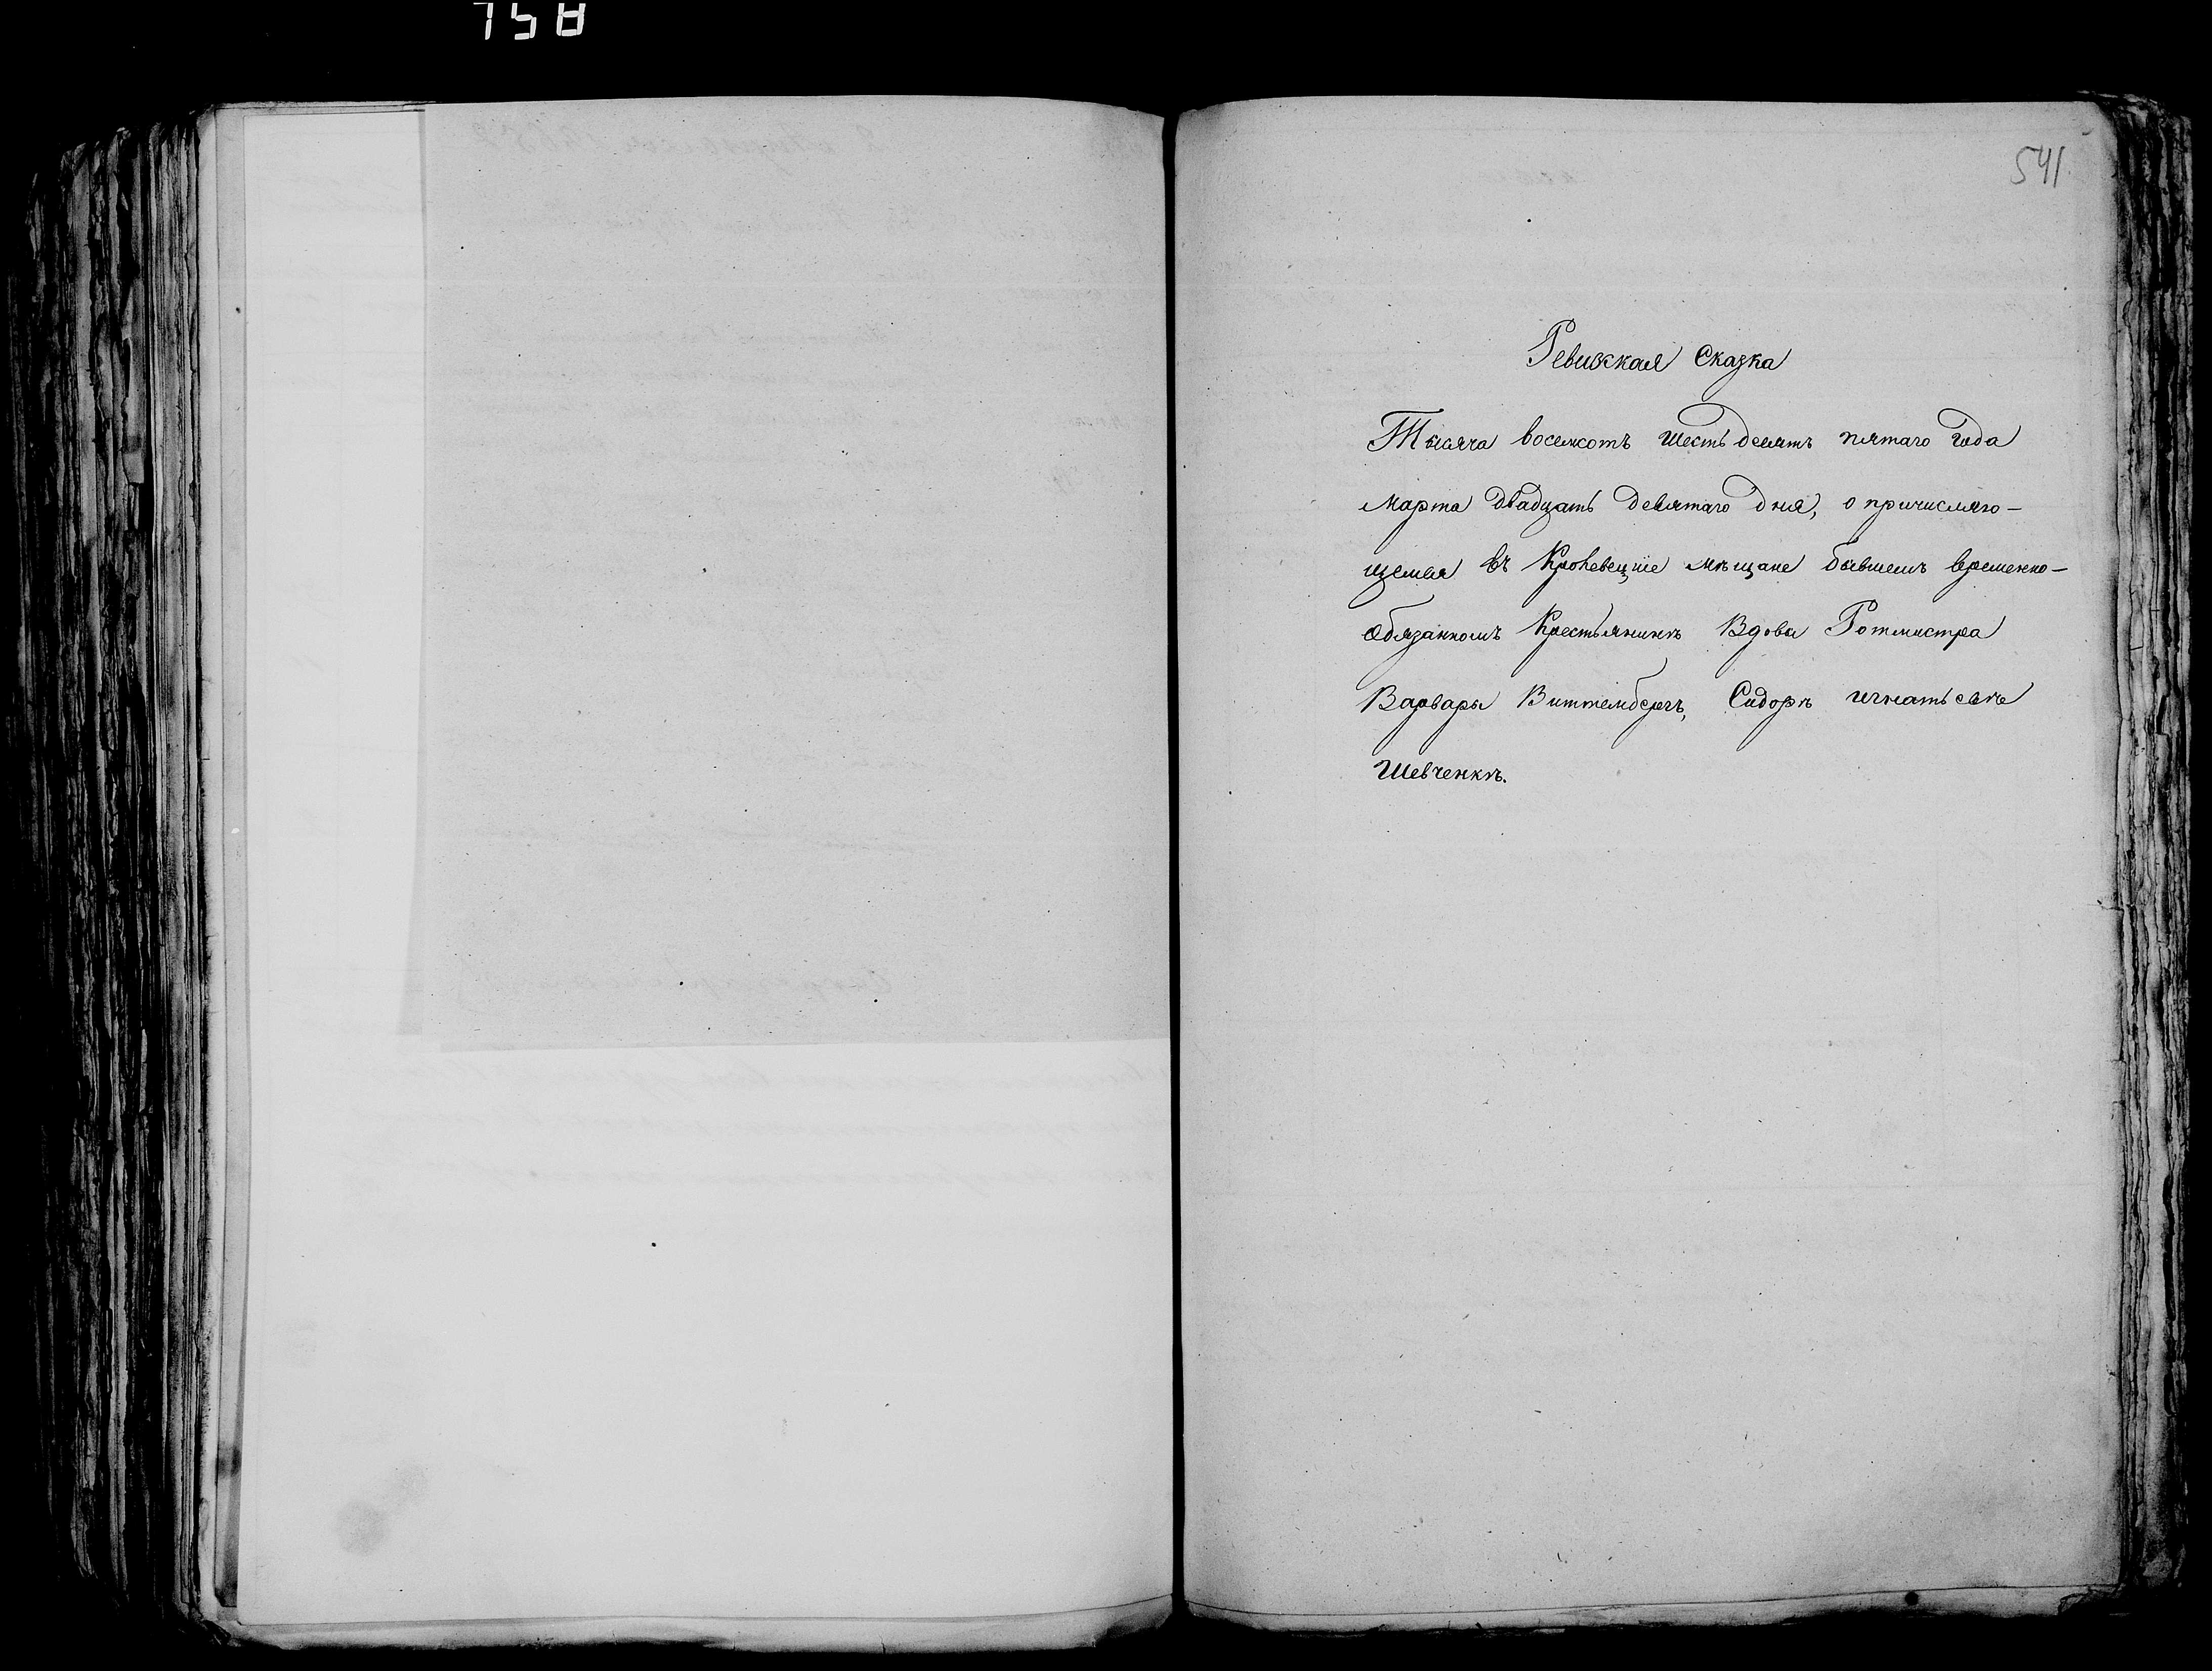 758
541
Ревизская Сказка
Тысяча восемсотъ шестьдесятъ пятаго года
Марта двадцать девятаго дня, о причисляю-
щемся въ Кролевецкіе мѣщане бывшемъ временно-
обязанномъ Крестьянинѣ Вдовы Ротмистра
Варвары Виттембергъ, Сидорѣ Игнатьевѣ
Шевченкѣ.